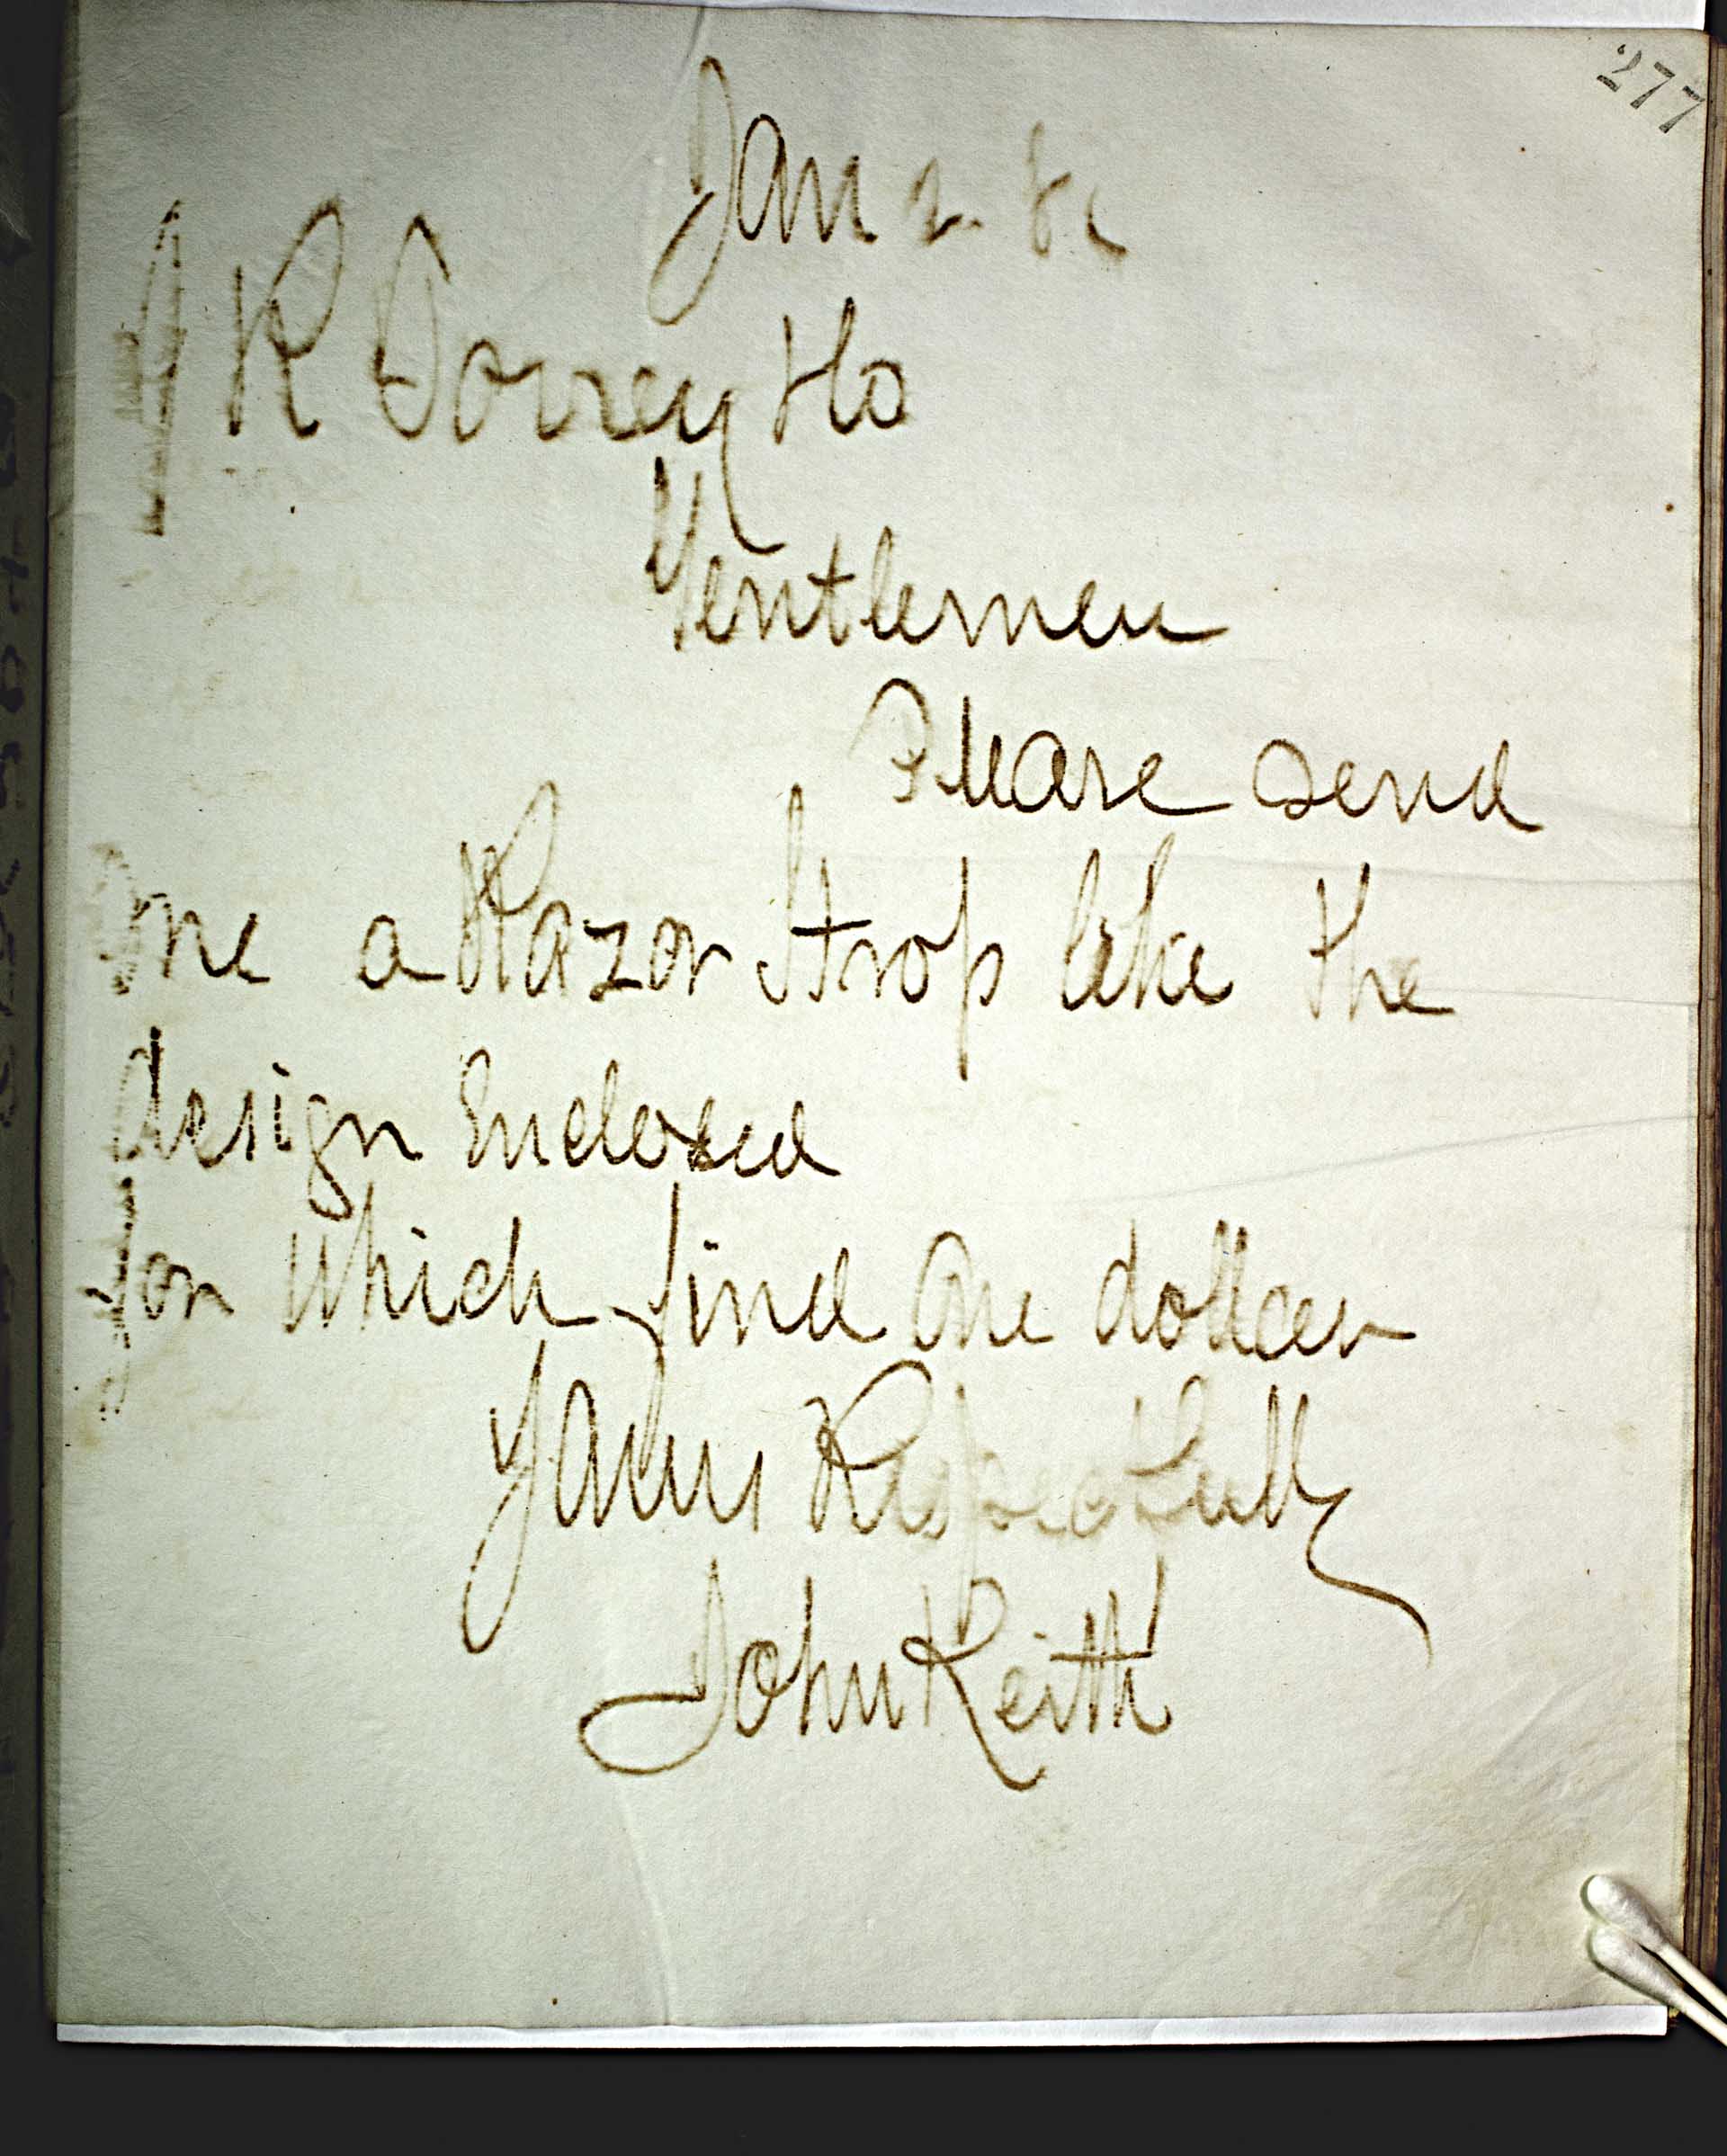 277
Jan 2
J R Torrey & Co
Gentlemen
Please send
me a Razor Strop like the
design Enclosed
for which find One dollar
Yours Respectfully
John Keith